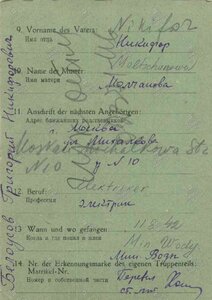 9. Vorname des Vaters: Nikifor
Имя отца Никифор
10. Name der Mutter: Moltschanowa
Имя матери Молчанова
11. Anschrift der nächsten Angehörigen:
Адрес ближайших родственников
Москва
N 10
12. Beruf: Elektriker
Профессия электрик
13. Wann und wo gefangen 11.8.42
Когда и где пленен Min Wody
Мин. Воды
14. Nr. der Erkennungsmarke des eigenen Truppenteils:
Matrikel-Nr.
Номер в собственной части
Белоусов Григорий Никифорович